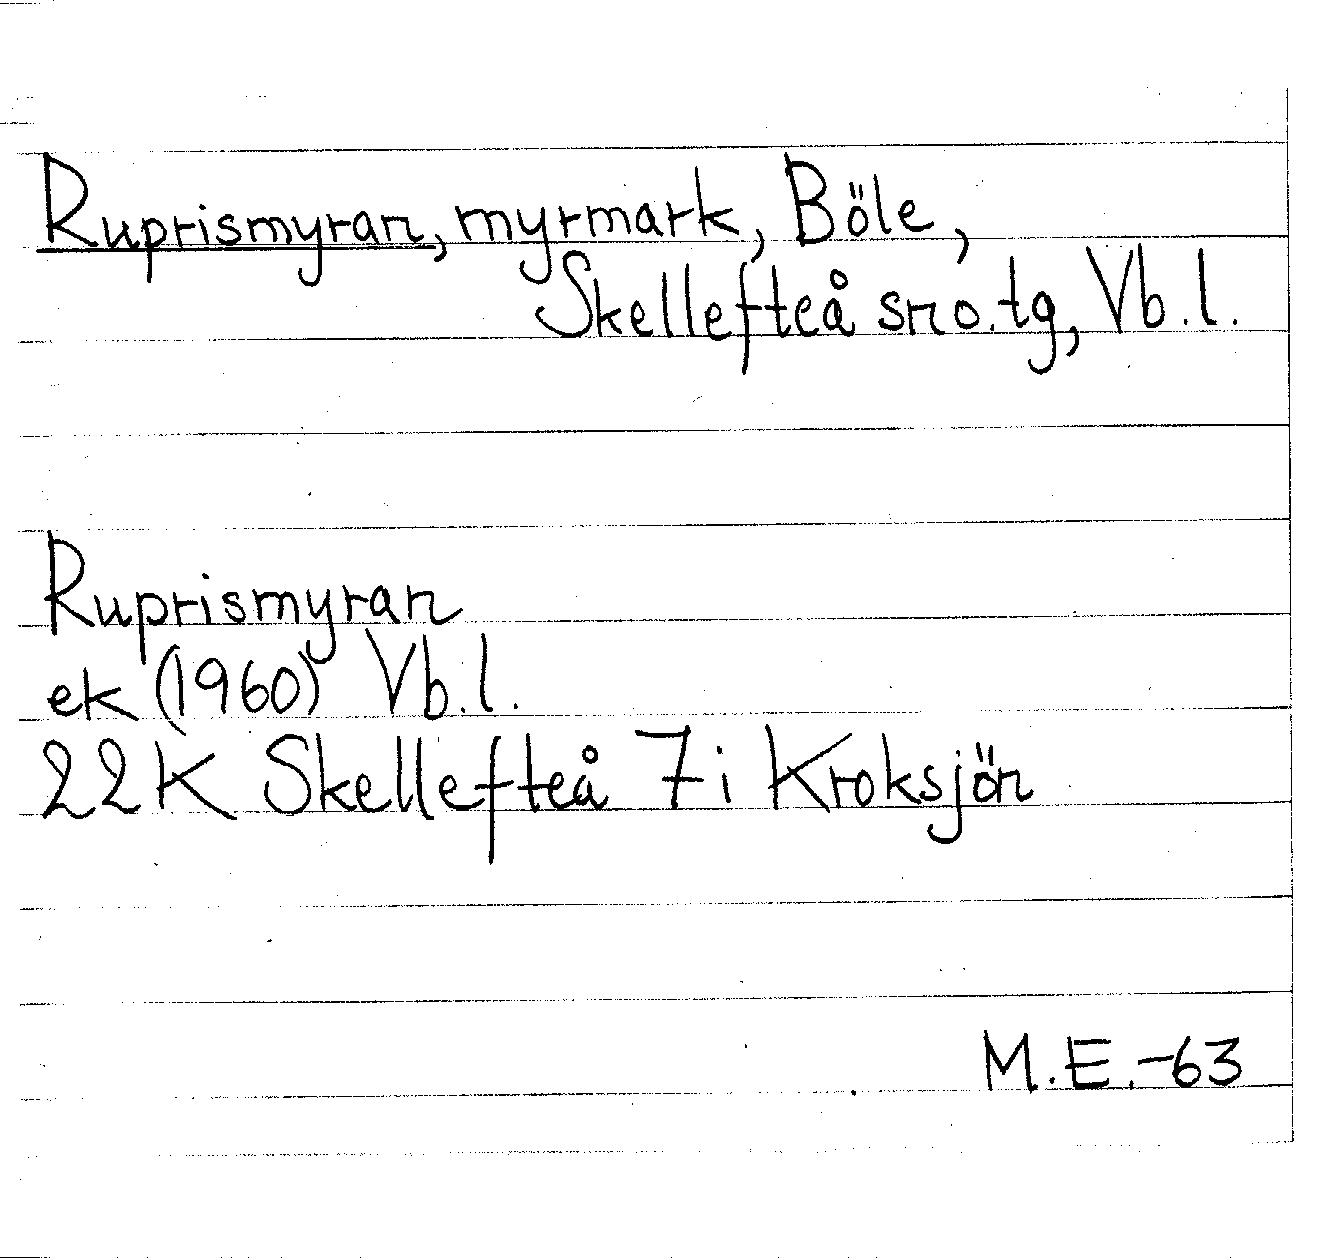 Ruprismyran, myrmark, Böle,
Skellefteå sn o. tg, Vb. l.
Ruprismyran
ek (1960) Vb. l.
22K Skellefteå 7i Kroksjön
M.E.-63